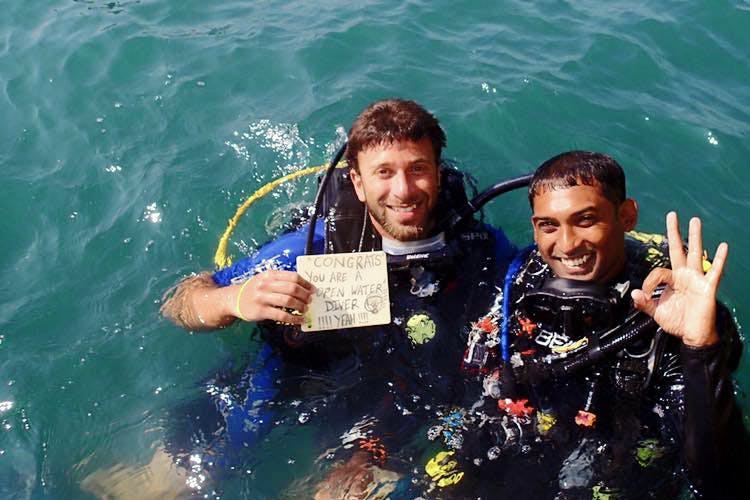 "CONGRATS"
YOU ARE A
OPEN WATER
DIVER
!!!! YEAH !!!!